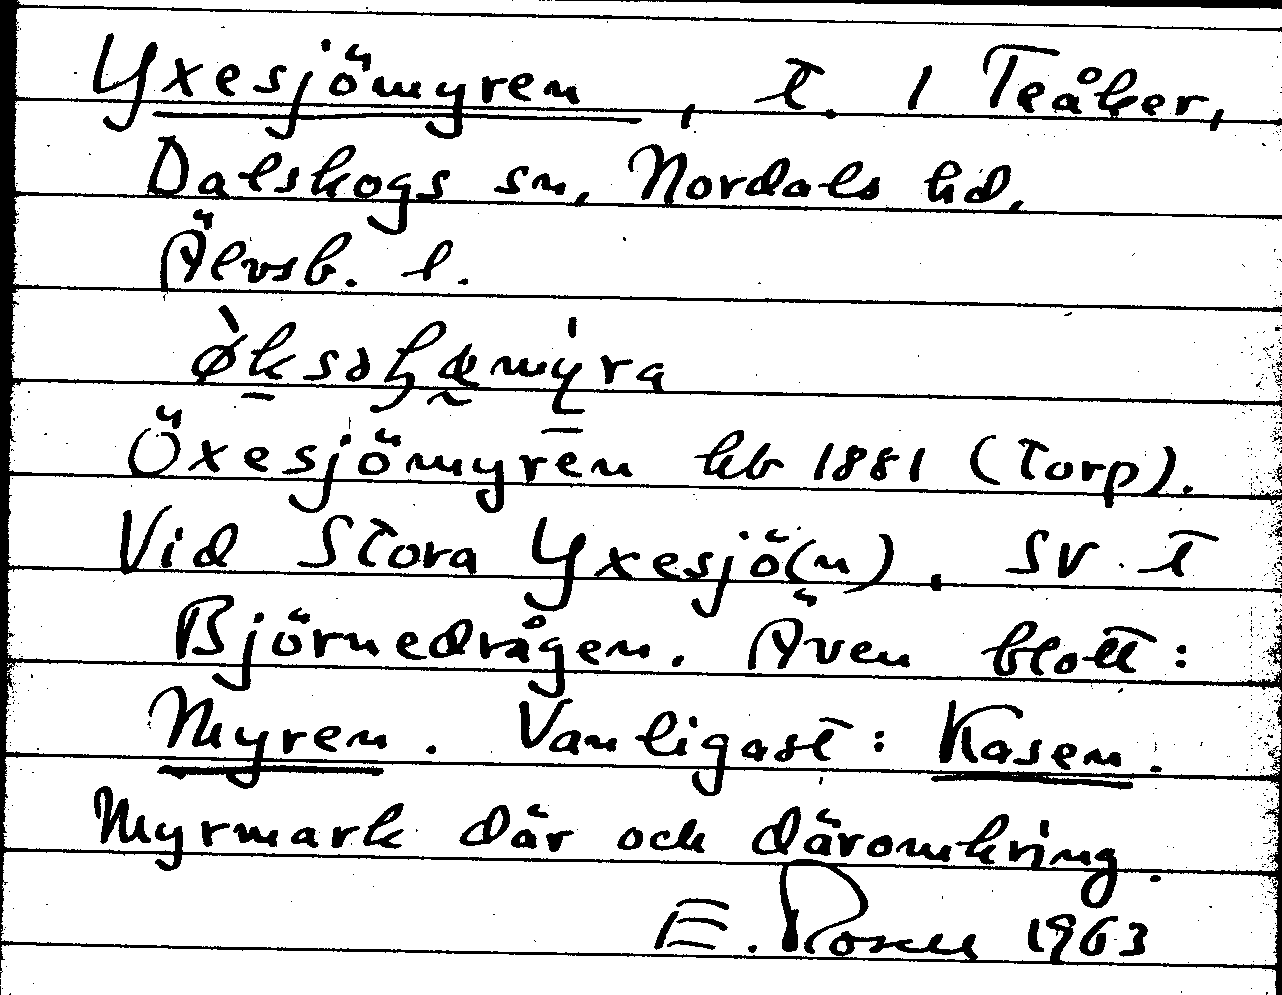 Yxesjömyren, t. 1 Teåker,
Dalskogs sn, Nordals hd,
Älvsb. l.
Öxesjömyren kb 1881 (Torp).
Vid Stora Yxesjö(n), SV t
Björnedrågen. Även blott:
Myren. Vanligast: Kasen.
Myrmark där och däromkring.
E. 1963